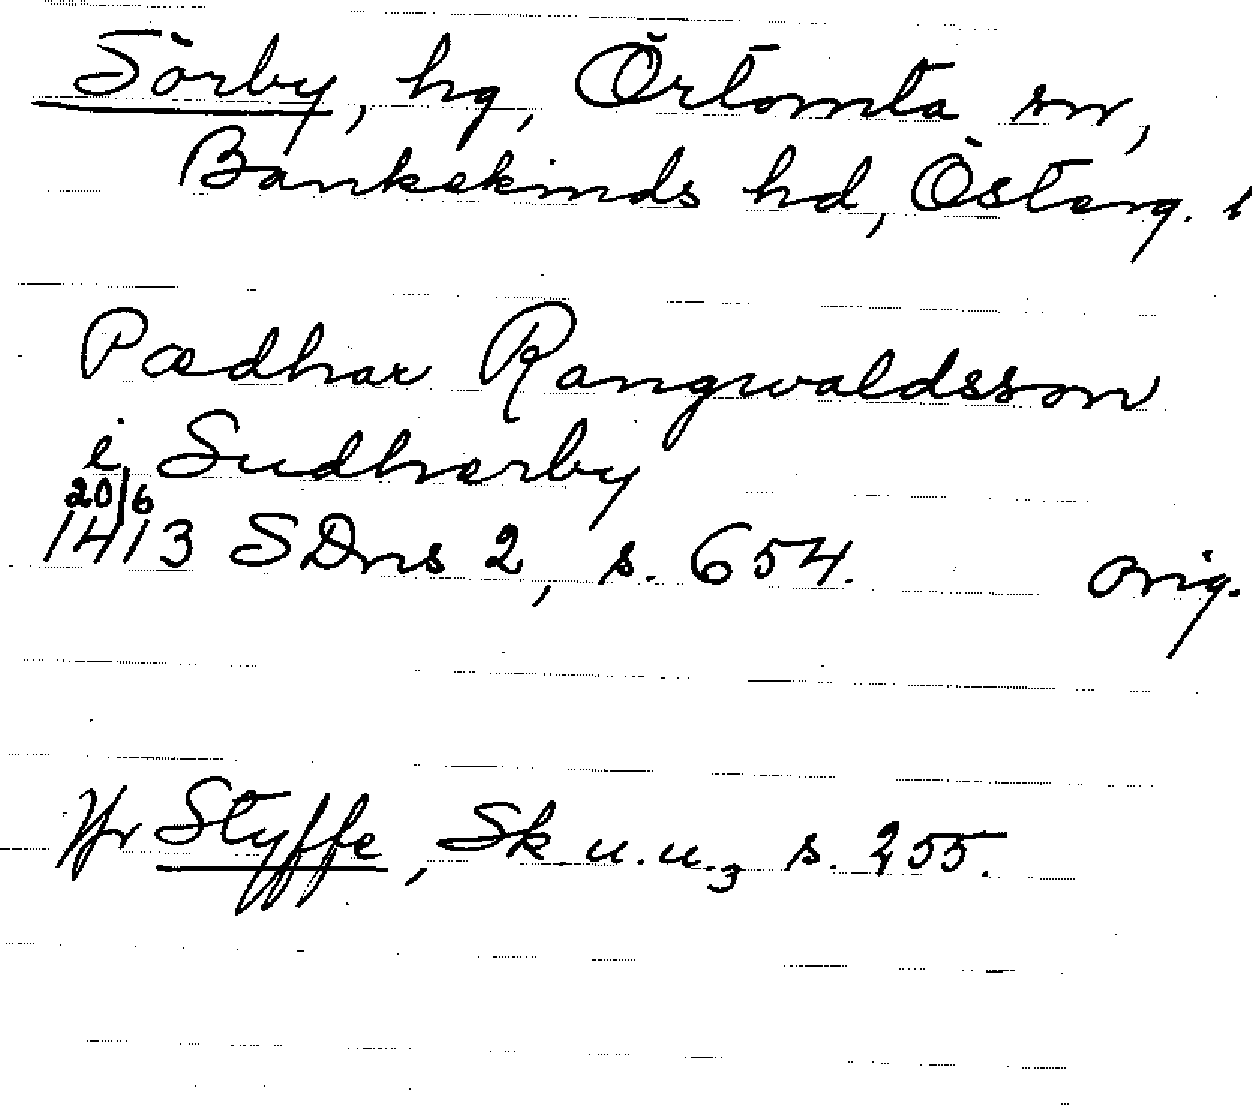 Sörby, hg, Örtomta sn,
Bankekinds hd, Österg. l
Pædhar Rangwaldsson
i Sudhærby
20/6
1413 SDns 2, s. 654. orig.
Jfr Styffe, Sk.u.u.3 s. 255.